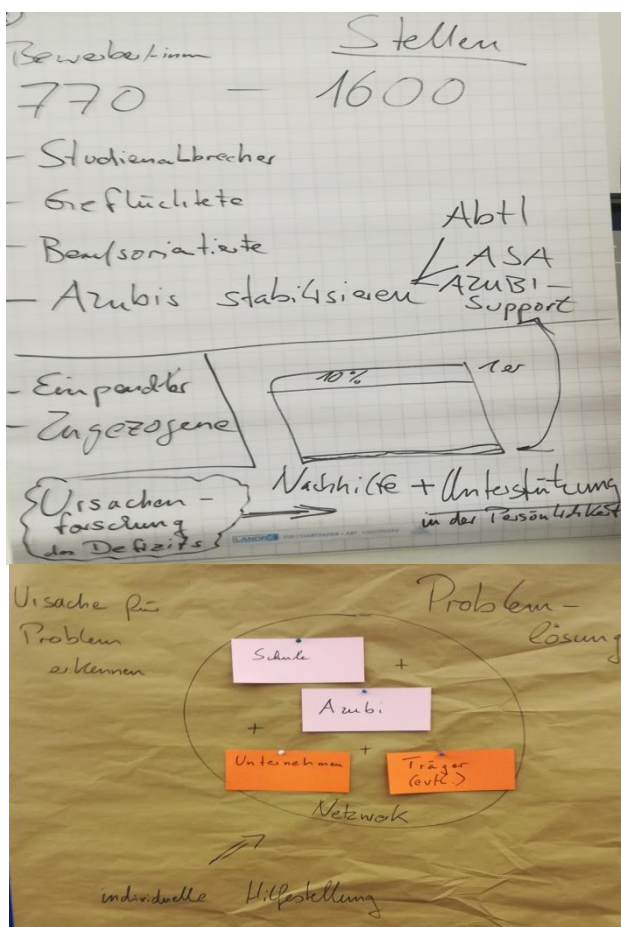 Bewerber/-innen
Stellen
770 – 1600
- Studienabbrecher
- Geflüchtete
- Berufsorientierte
- Azubis stabilisieren
Abtl
ASA
AZUBI-
Support
- Einpendler
- Zugezogene
10%
1er
Ursachen-
forschung
des Defizits
Nachhilfe + Unterstützung
in der Persönlichkeit
LANDRÉ
Ursache für
Problem
erkennen
Problem-
lösung
Schule
+
Azubi
+
+
Unternehmen
Träger
(evtl.)
Netzwerk
individuelle Hilfestellung